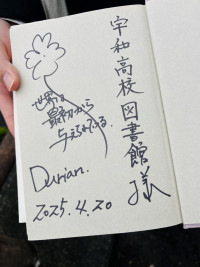 宇和高校図書館様
世界は
最初から
与えられてる.
Durian.
2025.4.20